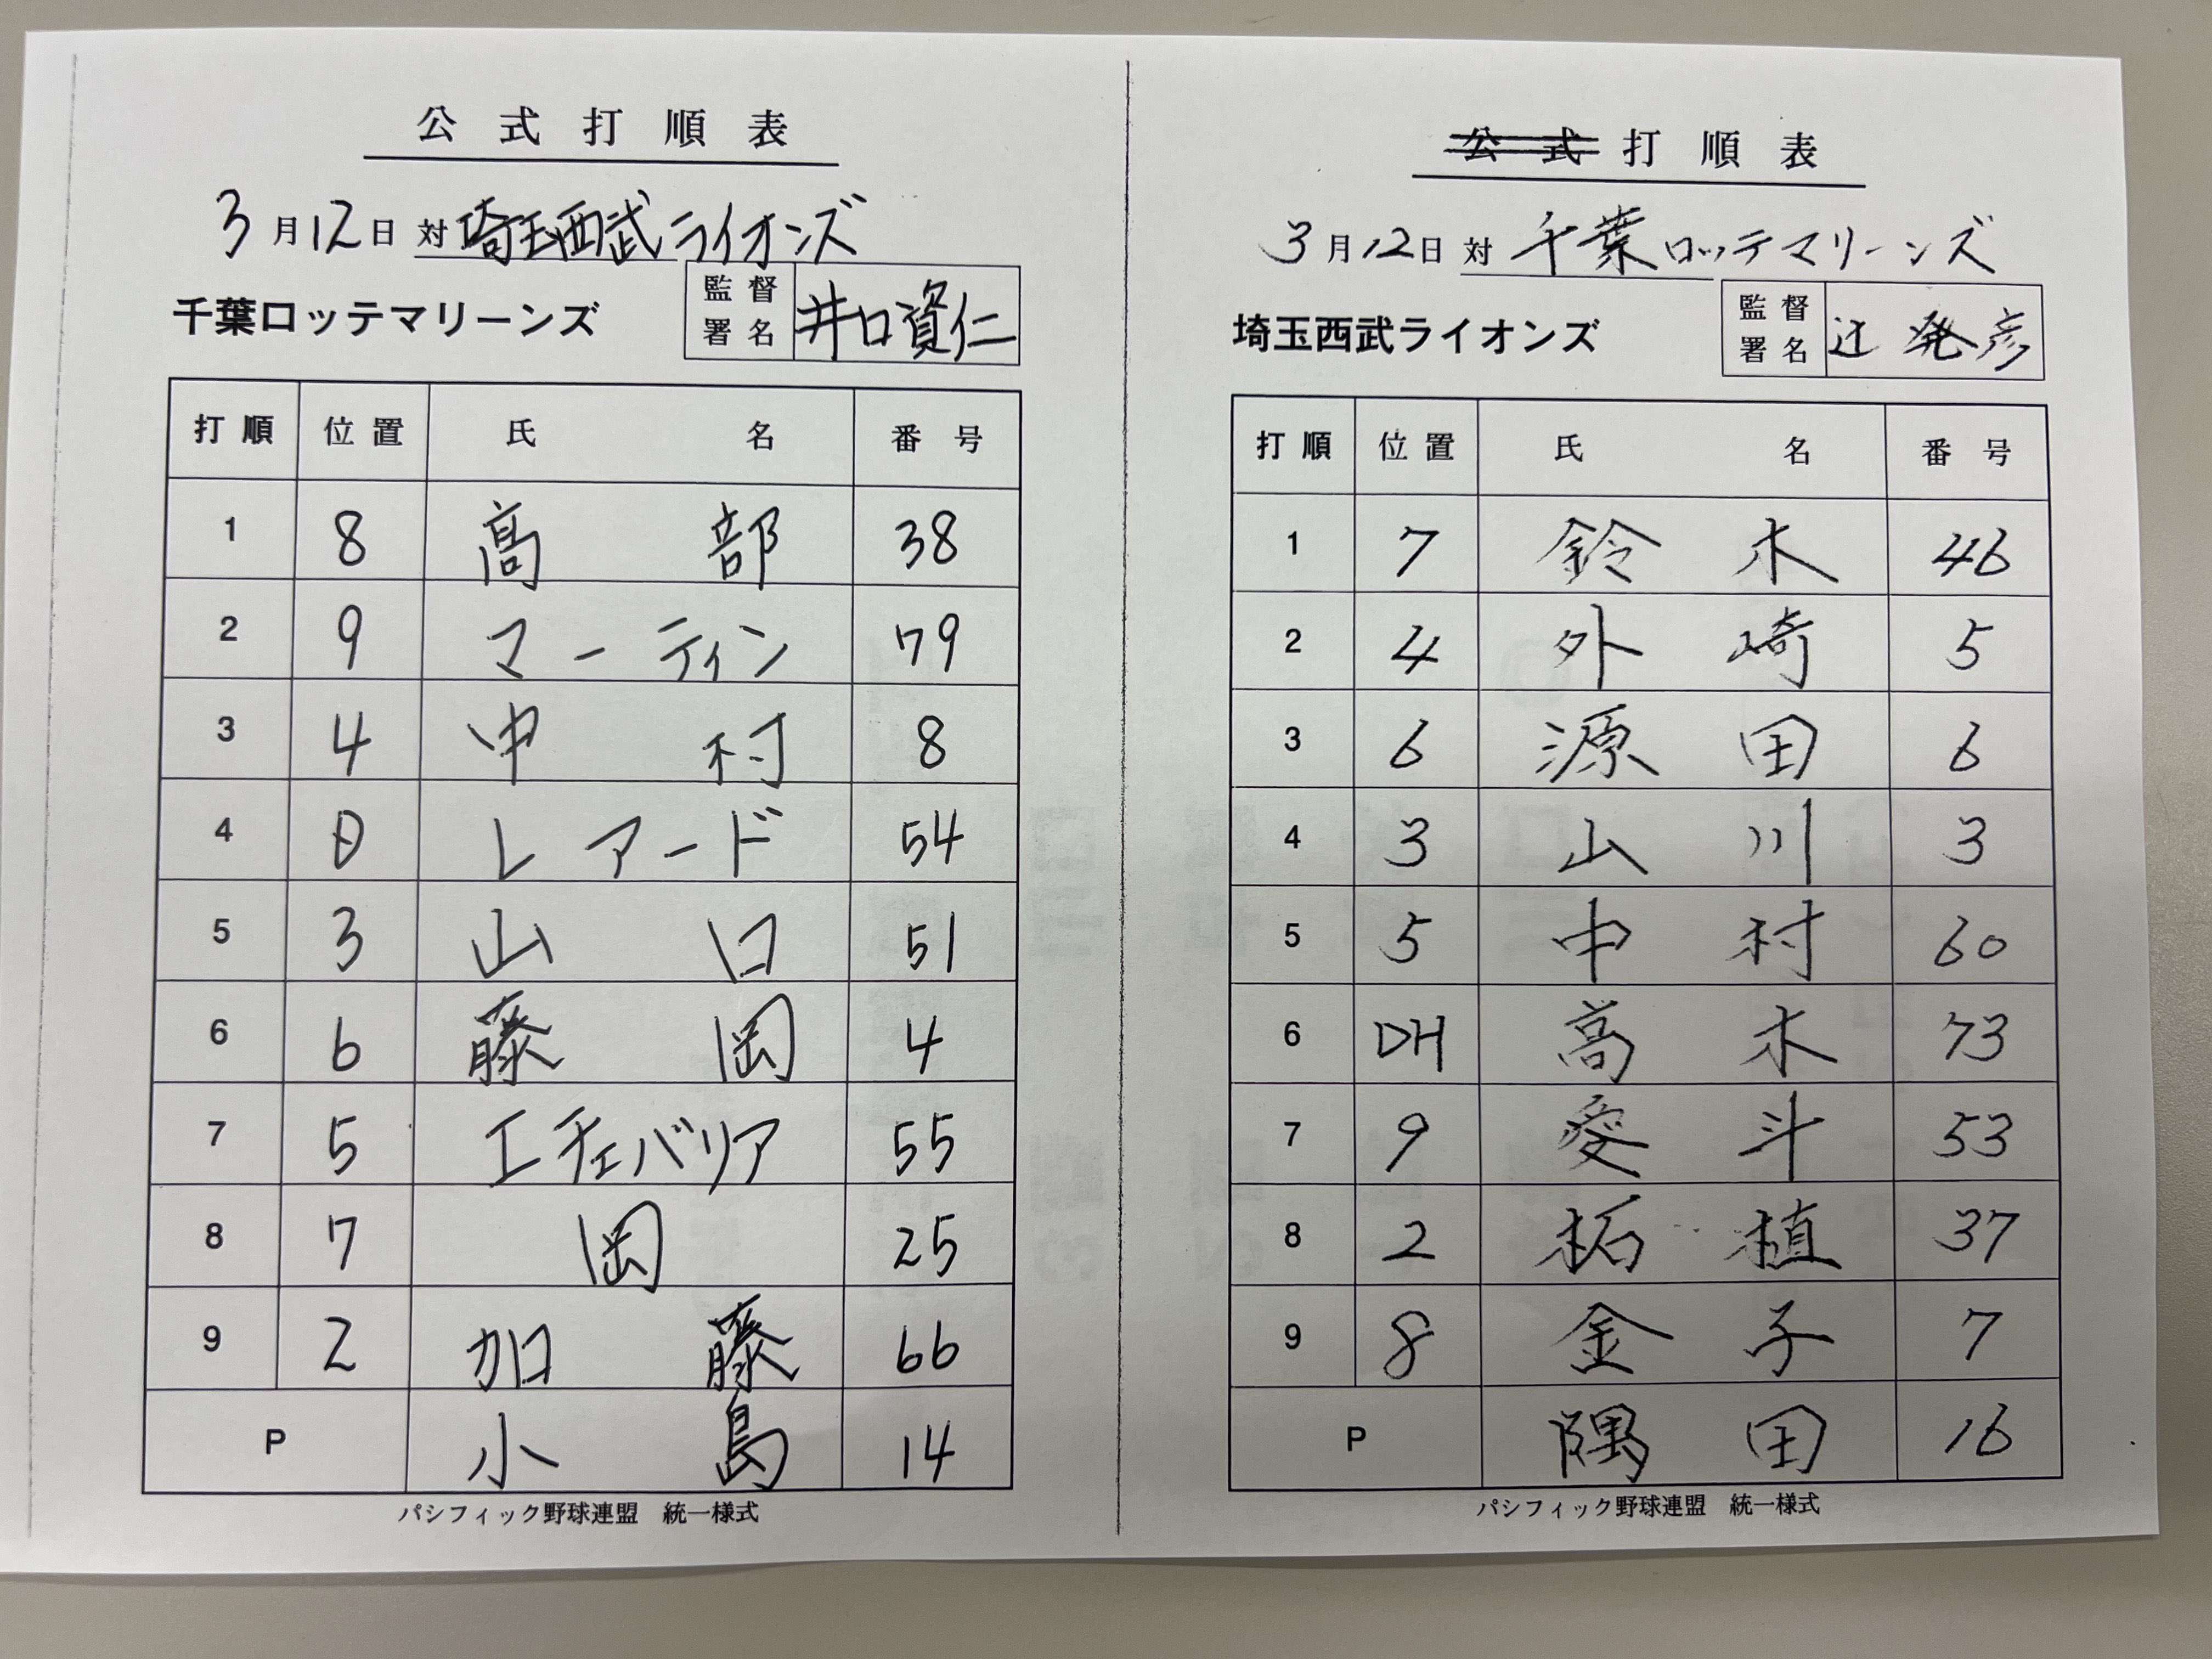 公式打順表
3月12日 対 埼玉西武ライオンズ
千葉ロッテマリーンズ 監督署名 井口資仁
打順 位置 氏名 番号
1 8 高部 38
2 9 マーティン 79
3 4 中村 8
4 D レアード 54
5 3 山口 51
6 6 藤岡 4
7 5 エチェバリア 55
8 7 岡 25
9 2 加藤 66
P 小島 14
パシフィック野球連盟 統一様式
公式打順表
3月12日 対 千葉ロッテマリーンズ
埼玉西武ライオンズ 監督署名 辻発彦
打順 位置 氏名 番号
1 7 鈴木 46
2 4 外崎 5
3 6 源田 6
4 3 山川 3
5 5 中村 60
6 DH 高木 73
7 9 愛斗 53
8 2 柘植 37
9 8 金子 7
P 隅田 16
パシフィック野球連盟 統一様式